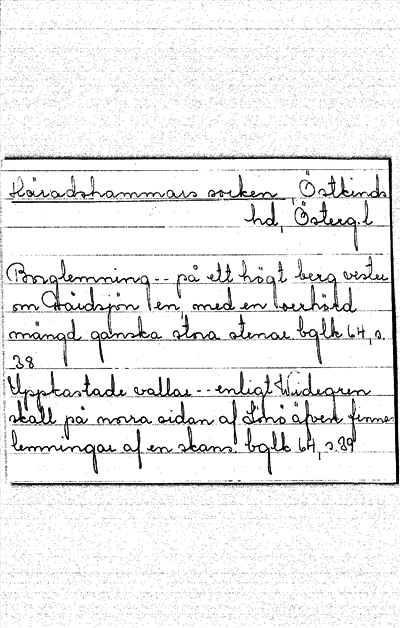 Häradshammars socken, Östkinds
hd, Österg.l
Borglemning -- på ett högt berg vester
om en, med en oerhörd
mängd ganska stora stenar. bglk 64, s.
38
Uppkastade vallar -- enligt Widegren
skall på norra sidan af äfven finnas
lemningar af en skans. bglk 64, s. 39